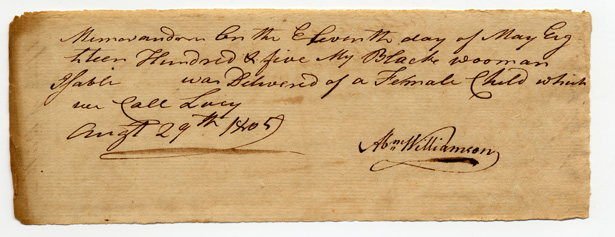 Memorandom On the Eleventh day of May Eig-
hteen Hundred & five My Black wooman
Isable was Delivered of a Female Child which
we Call Lucy
Augt 29th 1805
Abm Williamson